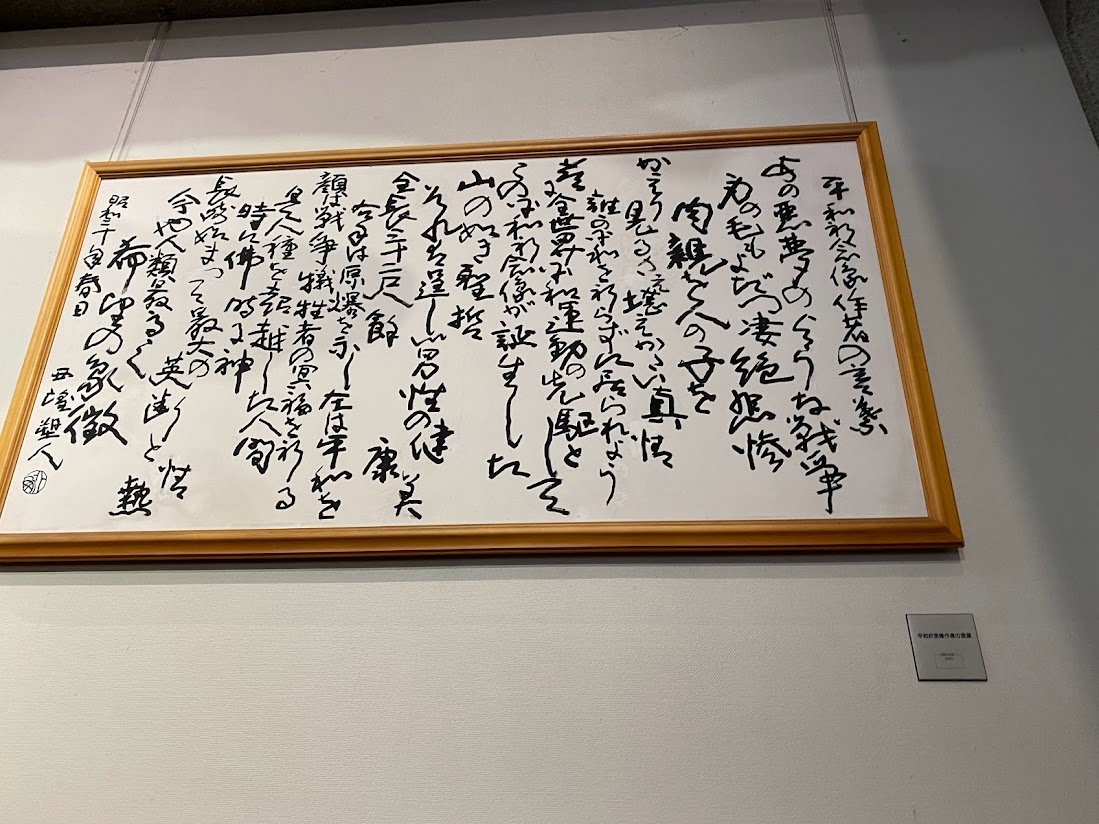 平和祈念像作者の言葉
あの悪夢のような戦争
身の毛もよだつ凄絶悲惨
肉親を人の子を
かえり見るさえ堪えがたい真情
誰か平和を祈らずに居られよう
茲に全世界平和運動の先駆として
この平和祈念像が誕生した
山の如き聖哲
それは逞しい男性の健康美
全長三十二尺餘
右手は原爆を示し左は平和を
顔は戦争犠牲者の冥福を祈る
是人種を超越した人間
時に佛 時に神
長崎始まって最大の
英断と情熱
今や人類最高の
希望の象徴
昭和三十年春日
西望塑人
平和祈念像作者の言葉